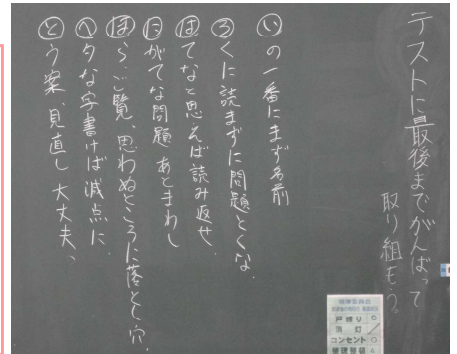 テストに最後までがんばって
取り組もう。
いの一番にまず名前
ろくに読まずに問題とくな.
はてなと思えば読み返せ.
にがてな問題 あとまわし
ほら、ご覧、思わぬところに落とし穴.
へタな字書けば減点に.
とう案、見直し 大丈夫、
戸締り
消灯
コンセント